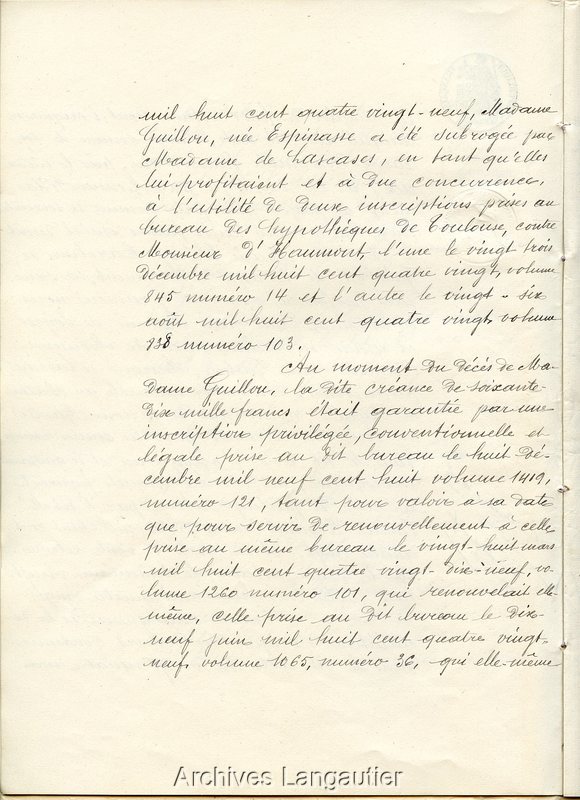 mil huit cent quatre vingt-neuf, Madame
Guillon, née Espinasse a été subrogée par
Madame de Lascases, en tant qu'elles
lui profitaient et à due concurrence,
à l'utilité de deux inscriptions prises au
bureau des hypothèques de Toulouse, contre
Monsieur d'Haumont, l'une le vingt trois
décembre mil huit cent quatre vingt, volume
845 numéro 14 et l'autre le vingt-six
août mil huit cent quatre vingt volume
838 numéro 103.
Au moment du décès de Ma-
dame Guillon, la dite créance de soixante-
dix mille francs était garantie par une
inscription privilégiée, conventionnelle et
légale prise au dit bureau le huit dé-
cembre mil neuf cent huit volume 1419,
numéro 121, tant pour valoir à sa date
que pour servir de renouvellement à celle
prise au même bureau le vingt-huit mars
mil huit cent quatre vingt-dix-neuf, vo-
lume 1260 numéro 101, qui renouvelait elle-
même, celle prise au dit bureau le dix-
neuf juin mil huit cent quatre vingt-
neuf, volume 1065, numéro 36, qui elle-même
Archives Langautier